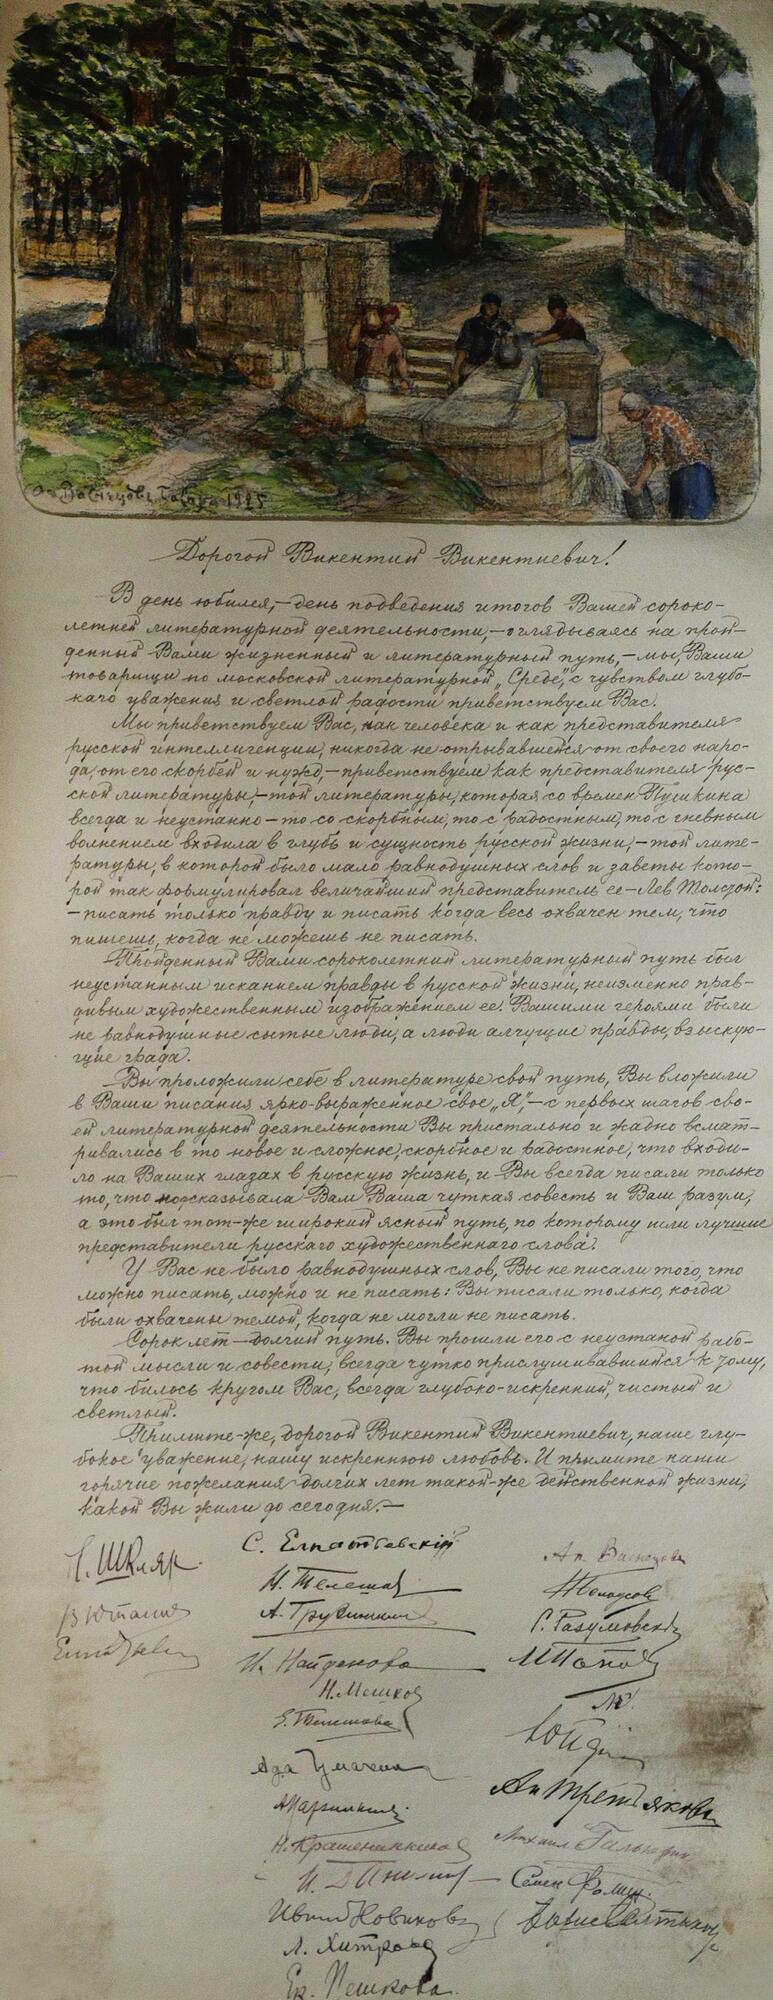 Ап Васнецовъ 1925
Дорогой Викентий Викентиевич!
В день юбилея,—день подведения итогов Вашей сороко-
летней литературной деятельности,—оглядываясь на прой-
денный Вами жизненный и литературный путь,—мы, Ваши
товарищи по московской литературной „Среде", с чувством глубо-
каго уважения и светлой радости приветствуем Вас.
Мы приветствуем Вас, как человека и как представителя
русской интеллигенции, никогда не отрывавшейся от своего наро-
да, от его скорбей и нужд,—приветствуем как представителя рус-
ской литературы,—той литературы, которая со времен Пушкина
всегда и неустанно—то со скорбным, то с радостным, то с гневным
волнением входила в глубь и сущность русской жизни,—той лите-
ратуры, в которой было мало равнодушных слов и заветы кото-
рой так формулировал величайший представитель ее—Лев Толстой:
—писать только правду и писать когда весь охвачен тем, что
пишешь, когда не можешь не писать.
Пройденный Вами сороколетний литературный путь был
неустанным исканием правды в русской жизни, неизменно прав-
дивым художественным изображением ее. Вашими героями были
не равнодушные сытые люди, а люди алчущие правды, взыскую-
щие града.
Вы проложили себе в литературе свой путь, Вы вложили
в Ваши писания ярко-выраженное свое „Я",—с первых шагов сво-
ей литературной деятельности Вы пристально и жадно всмат-
ривались в то новое и сложное, скорбное и радостное, что входи-
ло на Ваших глазах в русскую жизнь, и Вы всегда писали только
то, что подсказывала Вам Ваша чуткая совесть и Ваш разум,
а это был тот-же широкий ясный путь, по которому шли лучшие
представители русскаго художественнаго слова.
У Вас не было равнодушных слов, Вы не писали того, что
можно писать, можно и не писать: Вы писали только, когда
были охвачены темой, когда не могли не писать.
Сорок лет—долгий путь. Вы прошли его с неустаной рабо-
той мысли и совести, всегда чутко прислушивавшийся к тому,
что билось кругом Вас, всегда глубоко-искренний, чистый и
светлый.
Примите-же, дорогой Викентий Викентиевич, наше глу-
бокое уважение, нашу искреннюю любовь. И примите наши
горячие пожелания долгих лет такой-же действенной жизни,
какой Вы жили до сегодня.—
Н. Шкляр
С. Елпатьевскій
Ап Васнецовъ
Н. Телешов
С. Разумовскій
И. Найденова
Н. Мешков
Е. Телешова
Н. Крашенинников
Ан Третьякова
Семен Фомин
Иван Новиков
Л. Хитрово
Ек. Пешкова